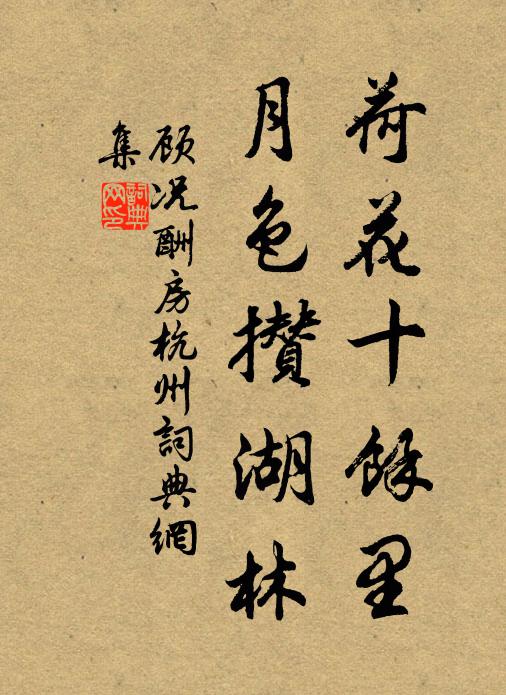 荷花十餘里
月色攢湖林
顾况酬房杭州詞典網
集
詞典網印